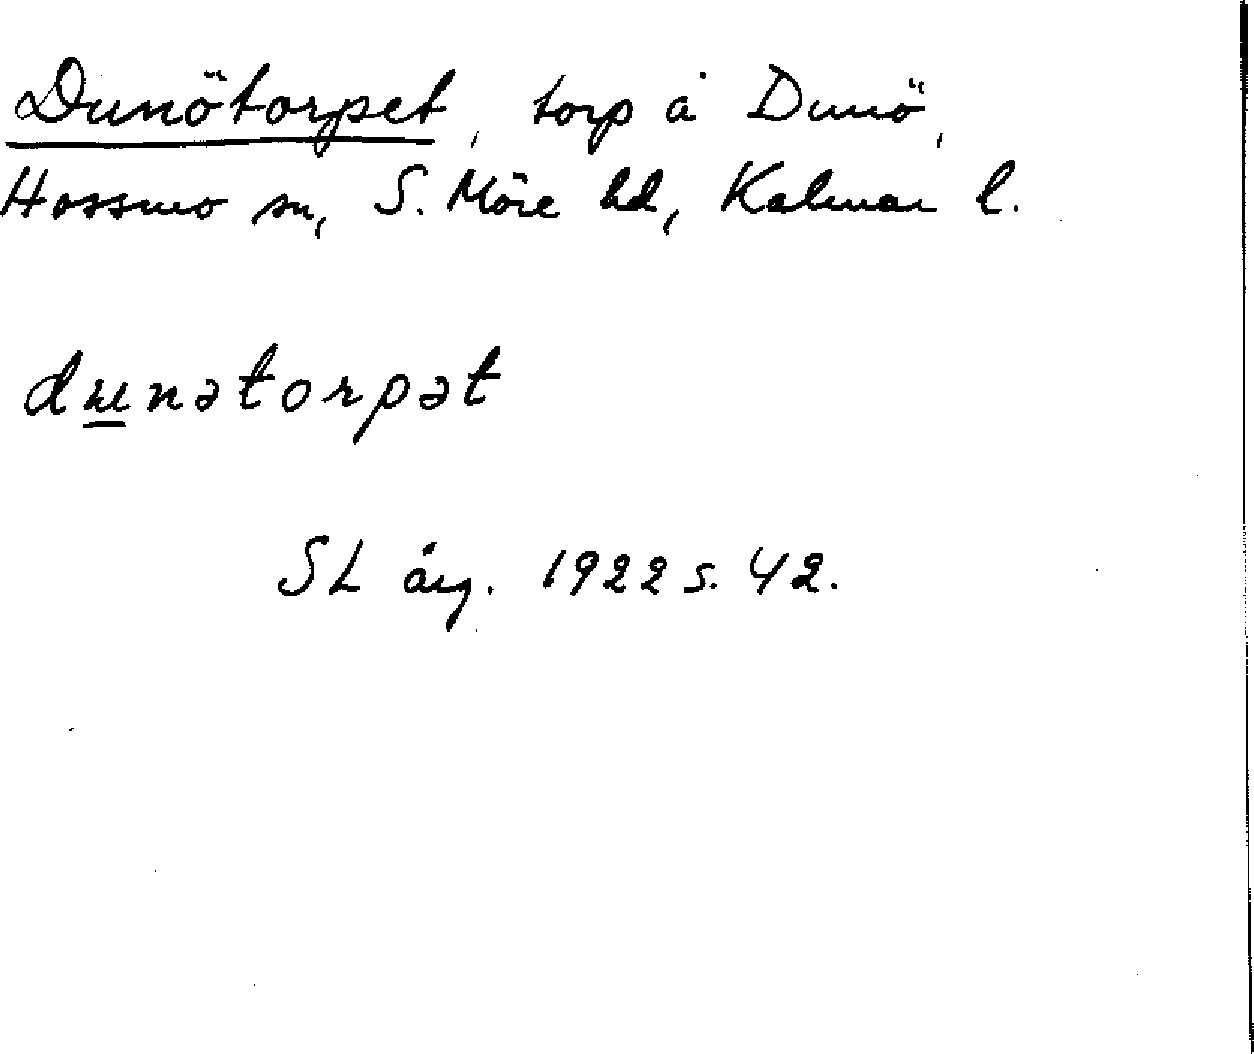 Dunötorpet, torp å Dunö,
Hossmo sn, S. Möre hd, Kalmar l.
dunətorpət
SL årg. 1922 s. 42.